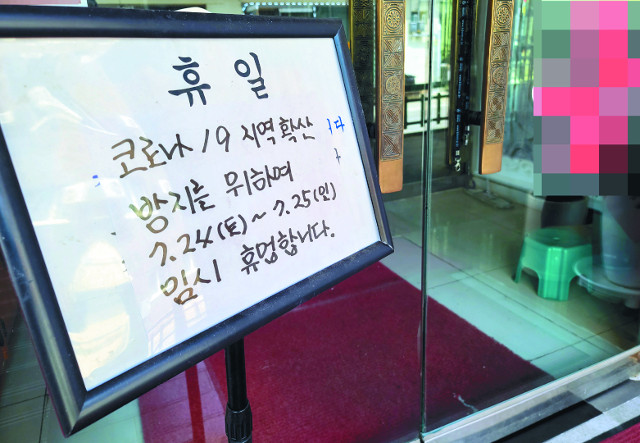 휴 일
코로나 19 지역 확산
방지를 위하여
7.24(토) ~ 7.25(일)
임시 휴업합니다.
다